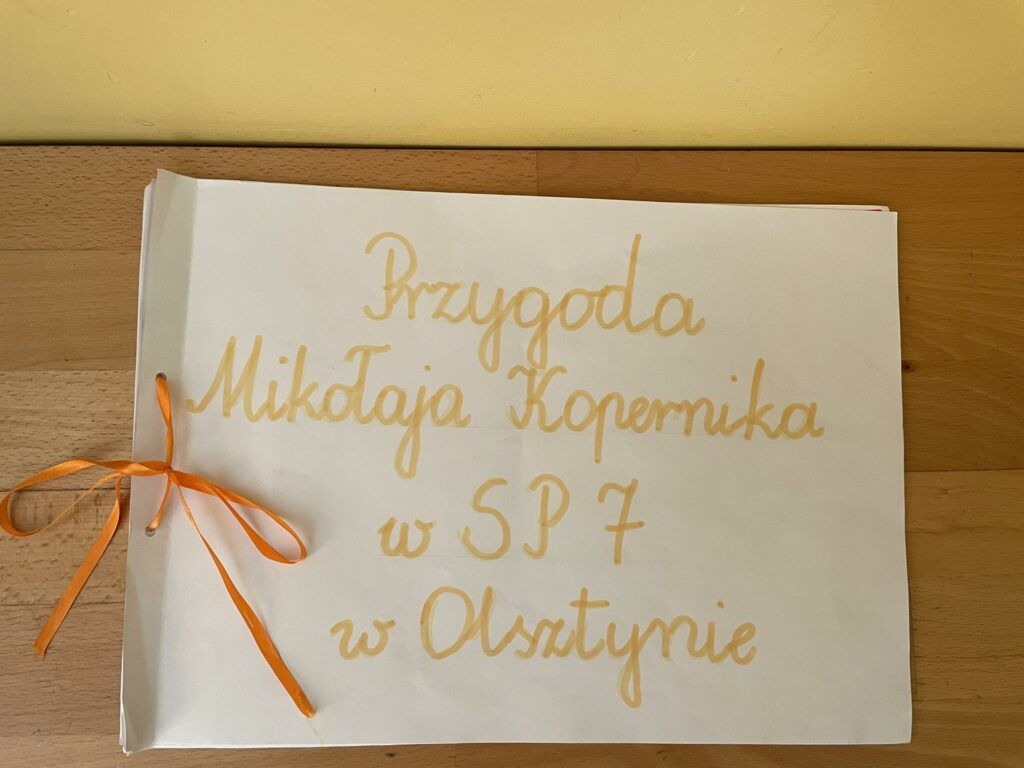 Przygoda
Mikołaja Kopernika
w SP 7
w Olsztynie